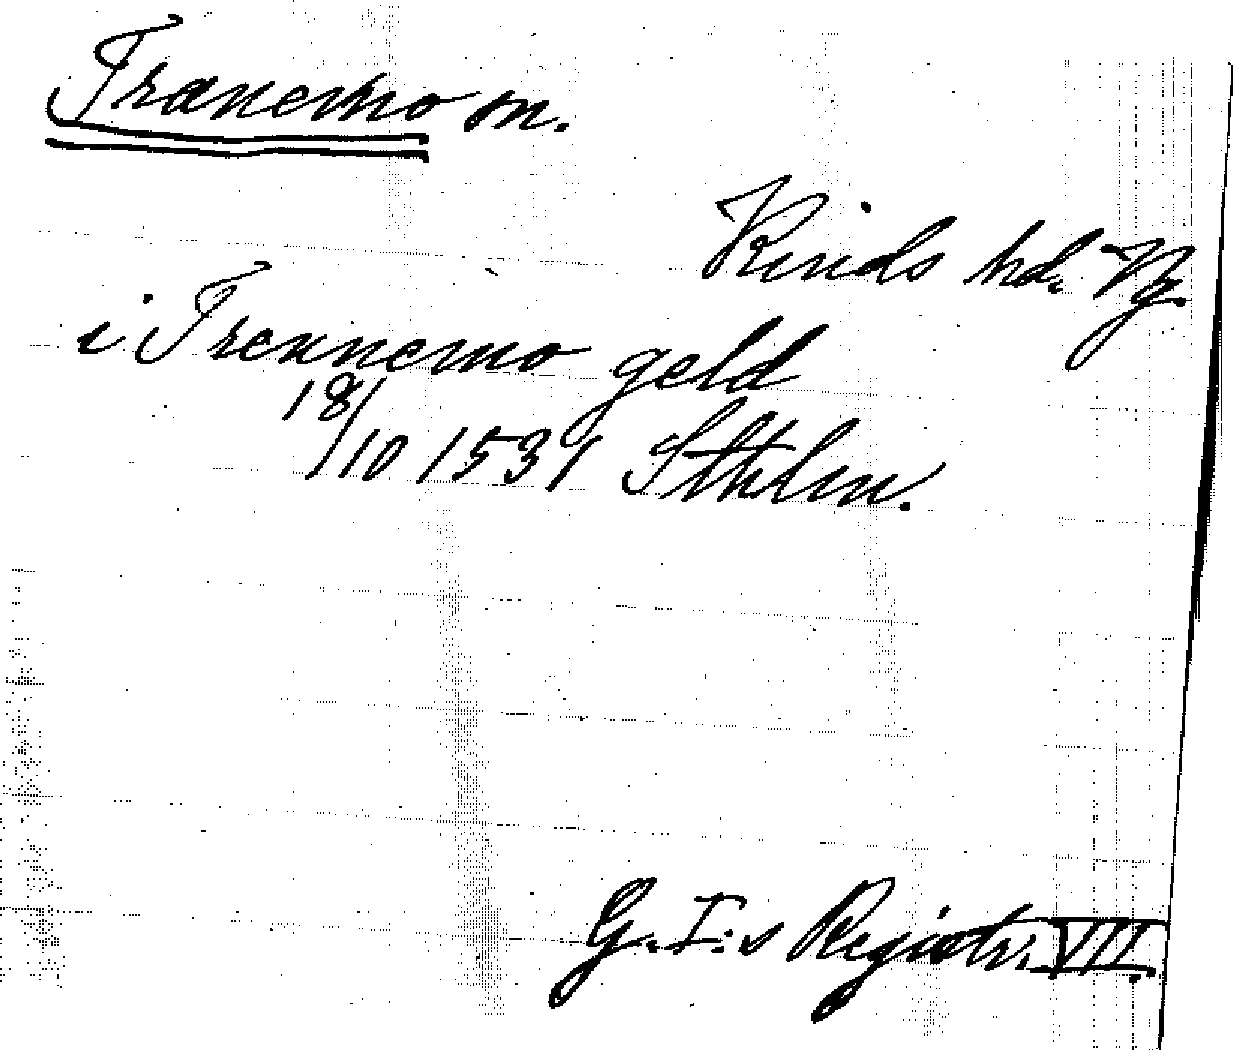 Tranemo sn.
Kinds hd. Vg.
i Trennemo geld
18/10 1531 Sthlm.
G. I:s Registr. VII.